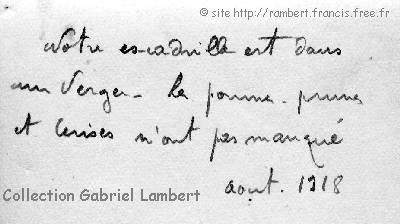 © site http://rambert.francis.free.fr
Notre escadrille est dans
un Verger - la pomme - prunes
et Cerises n'ont pas manqué
Collection Gabriel Lambert
aout. 1918